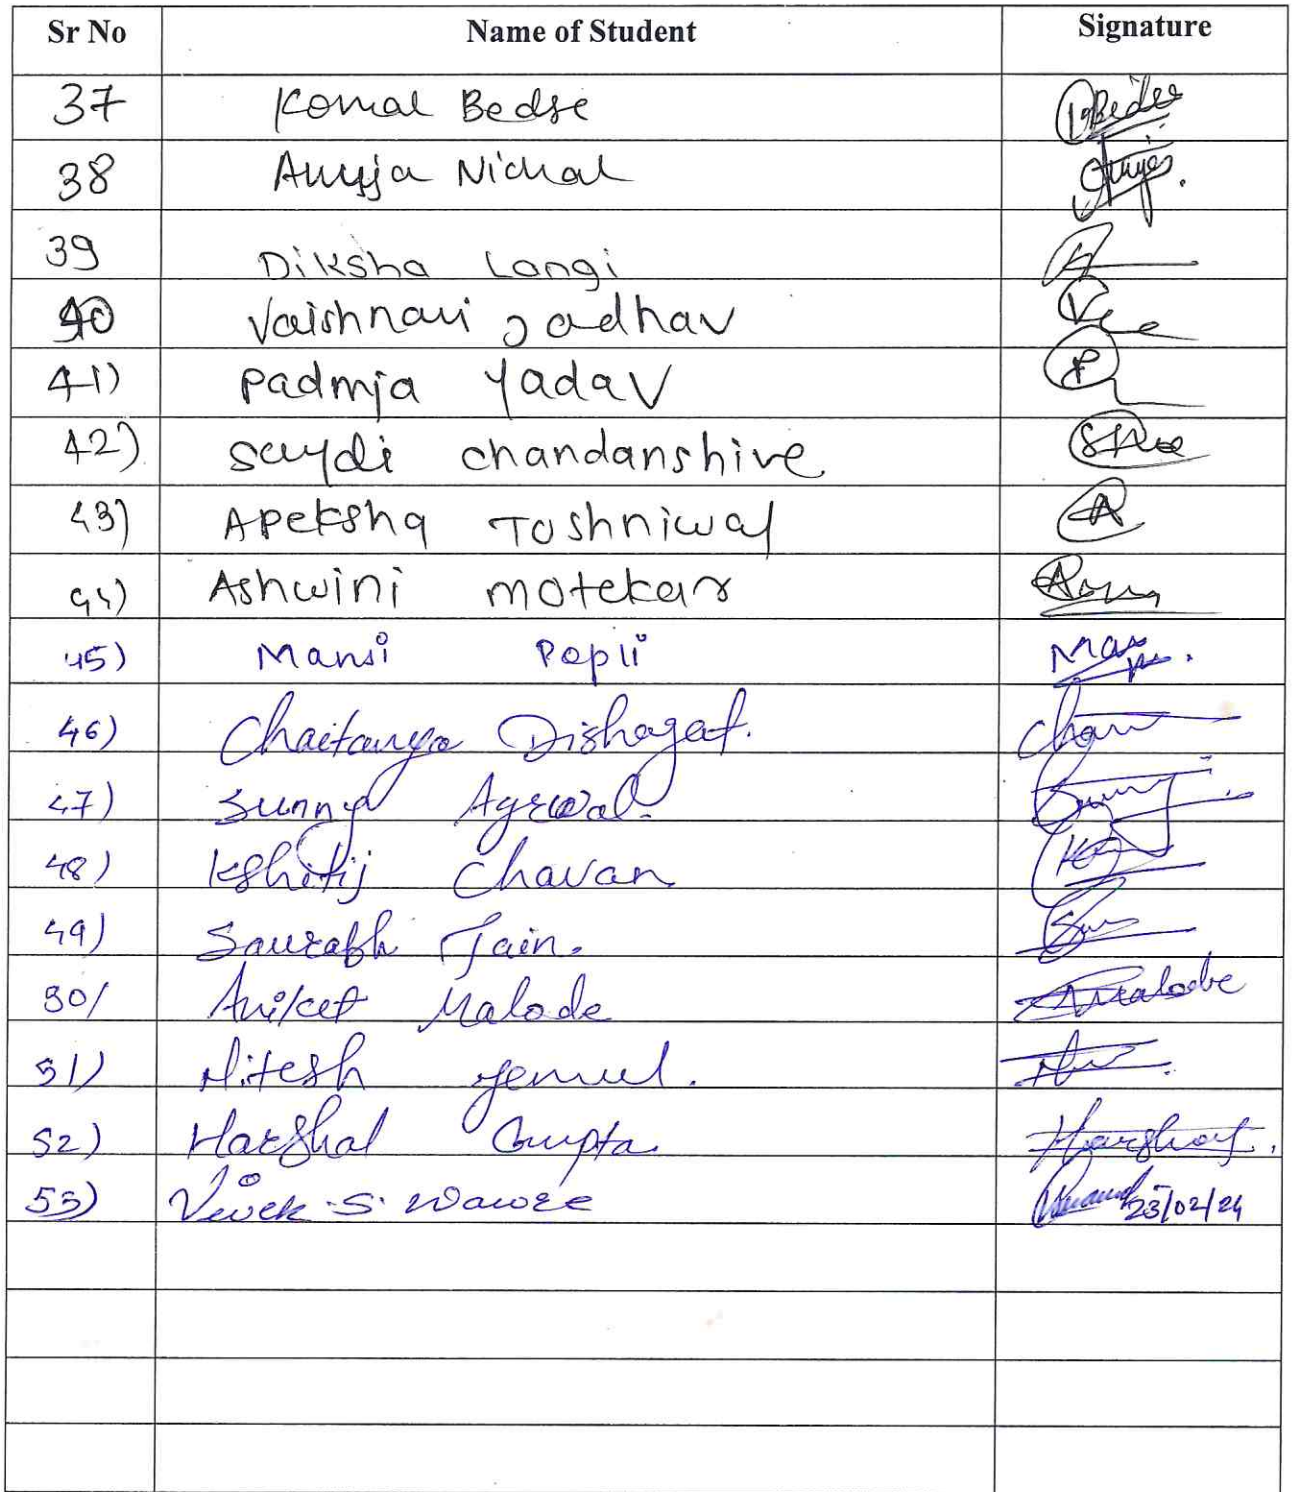 Sr No Name of Student Signature
37 Komal Bedse Bedse
38 Anuja Nichal Anuja.
39 Diksha Langi
40 Vaishnavi Jadhav
41) Padmja Yadav P
42) Saydi chandanshive
43) Apeksha Toshniwal A
44) Ashwini motekar
45) Mansi Popli
46) Chaitanya Dishagat.
47) Sunny Agrwal.
48) Kshitij Chavan
49) Saurabh Jain.
50/ Aniket Malode Amalode
51) Nitesh Yemul.
52) Harshal Gupta Harshal.
53) Vivek S. Wawre 23/02/24